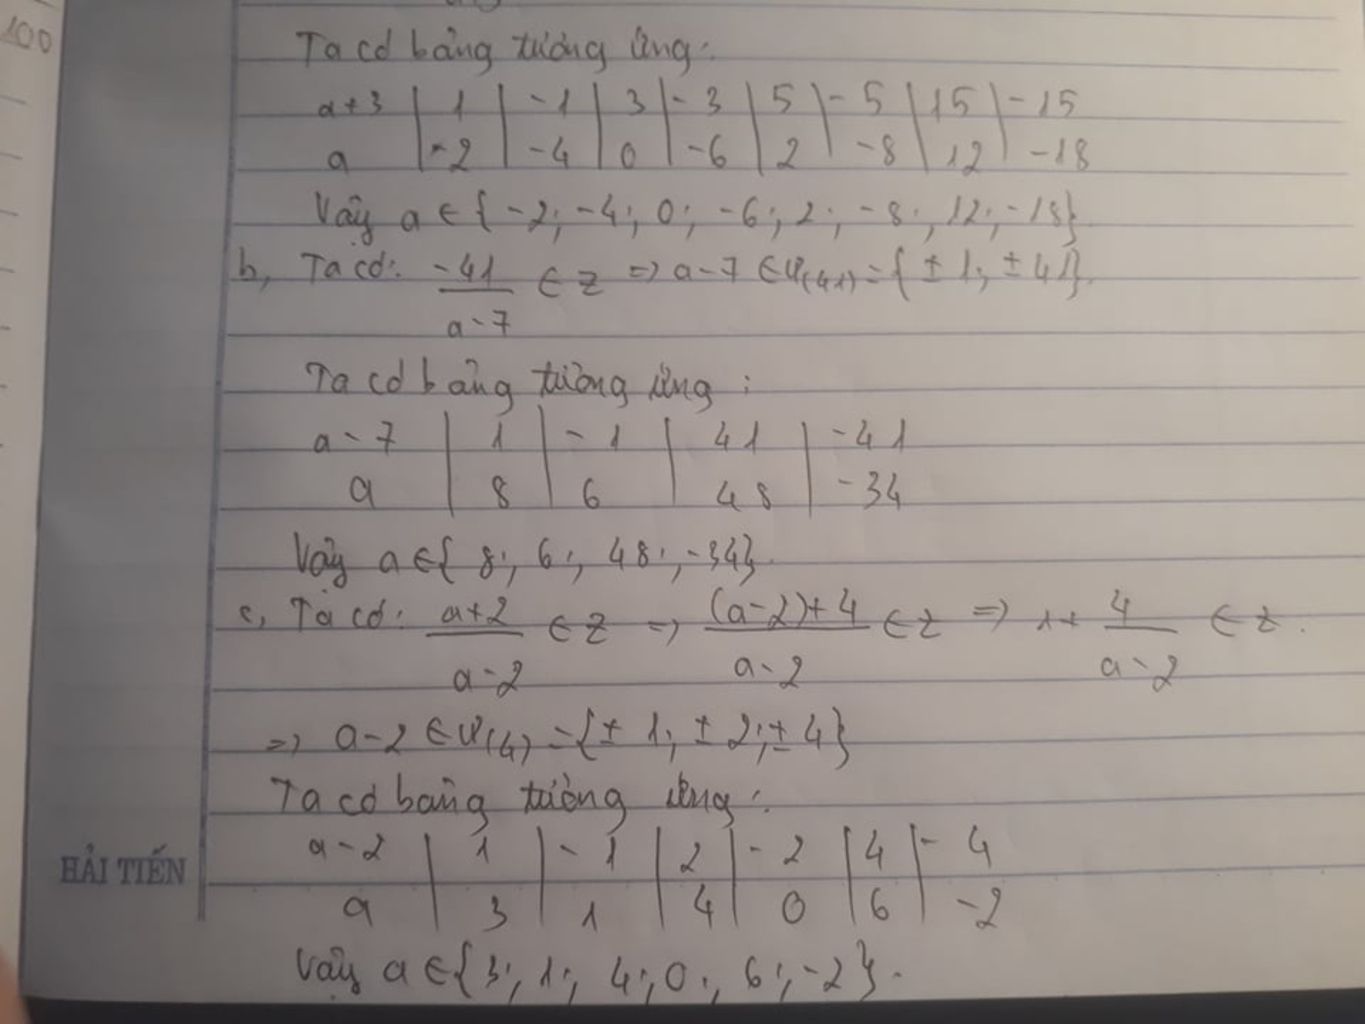 100
Ta có bảng tương ứng:
a+3 | 1 | -1 | 3 | -3 | 5 | -5 | 15 | -15
a | -2 | -4 | 0 | -6 | 2 | -8 | 12 | -18
Vậy a ∈ { -2; -4; 0; -6; 2; -8; 12; -18}
b, Ta có: -41/a-7 ∈ Z => a-7 ∈ Ư(41) = { ± 1; ± 41}.
Ta có bảng tương ứng:
a-7 | 1 | -1 | 41 | -41
a | 8 | 6 | 48 | -34
Vậy a ∈ { 8; 6; 48; -34}.
c, Ta có: a+2/a-2 ∈ Z => (a-2)+4/a-2 ∈ Z => 1+ 4/a-2 ∈ Z.
=> a-2 ∈ Ư(4) = {± 1; ± 2; ± 4}
Ta có bảng tương ứng:
a-2 | 1 | -1 | 2 | -2 | 4 | -4
HẢI TIẾN
a | 3 | 1 | 4 | 0 | 6 | -2
Vậy a ∈ {3; 1; 4; 0; 6; -2}.